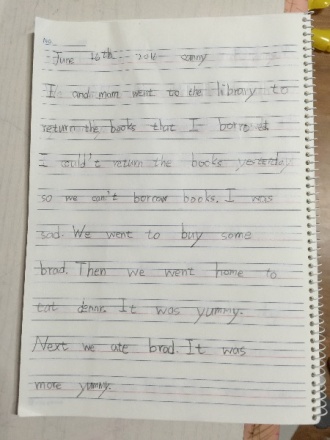 June 16th 201 sunny
I and mom went to the library to
return the books that I borro ed.
I could't return the books yesterday
so we can't borrow books. I was
sad. We went to buy some
brad. Then we went home to
eat dennr. It was yummy.
Next we ate brad. It was
more yummy.